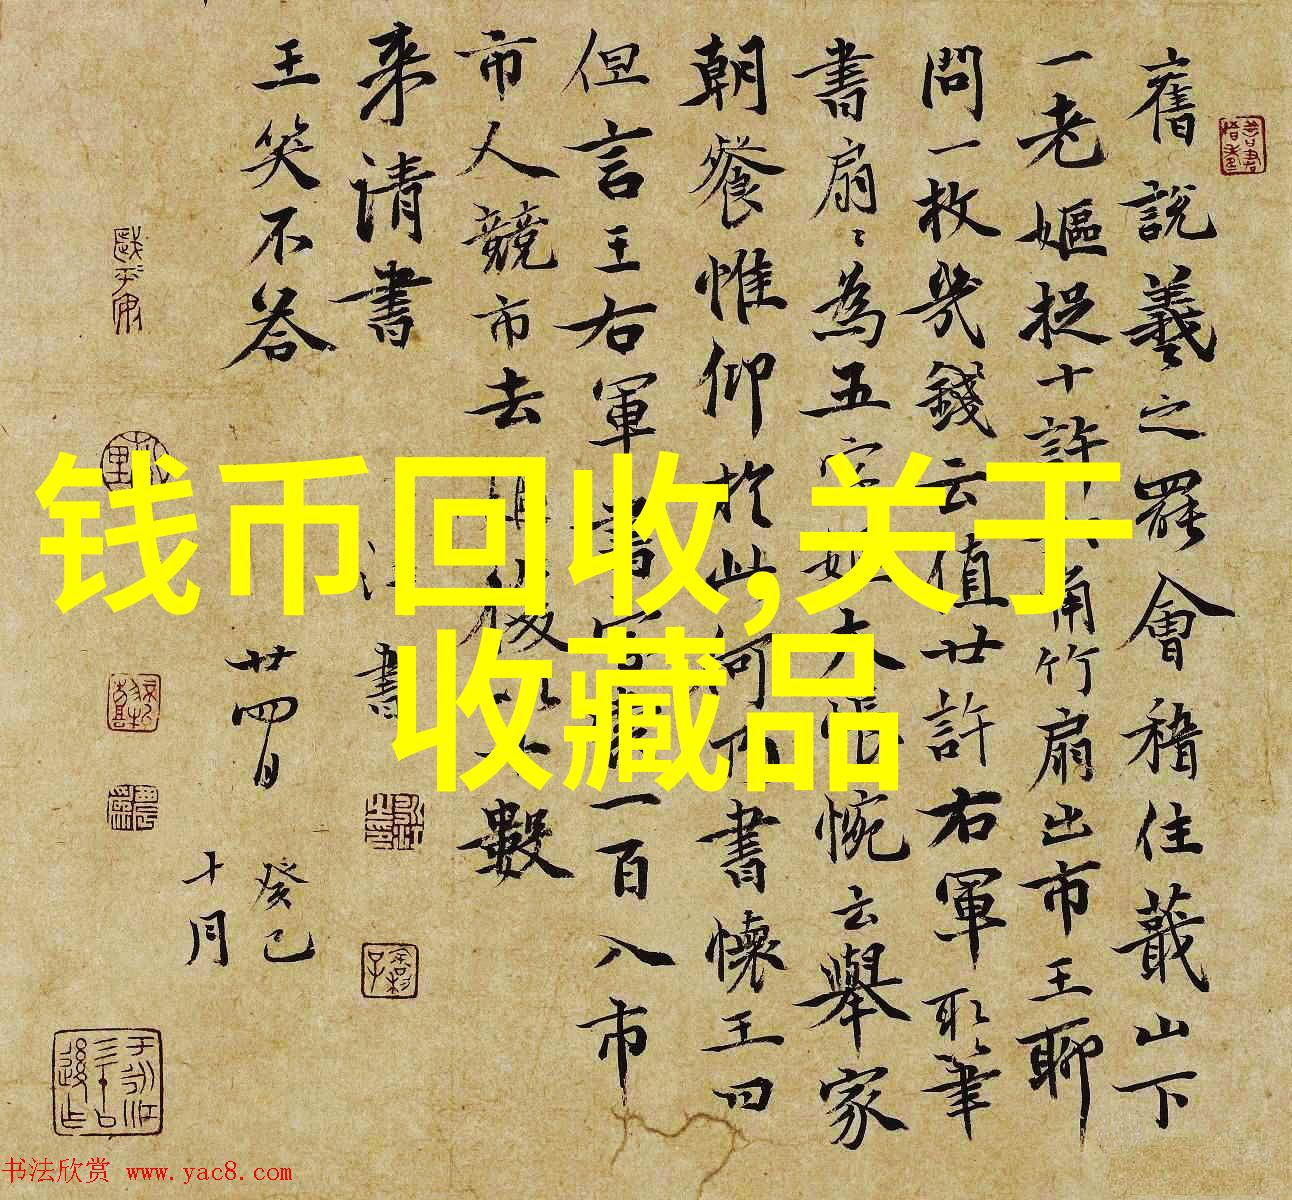 舊說羲之罷會稽住蕺山下
一老嫗捉十許 角竹扇出市王聊
問一枚幾錢云值廿許右軍取筆
書扇〻為五字 大悵惋云舉家
朝餐惟仰於此何 書懷王曰
但言王右軍書字 一百入市
市人競市去 後 數
来請書
王笑不答
書
廿四日
癸巳
十月
钱币回收,关于
收藏品
书法欣赏 www.yac8.com